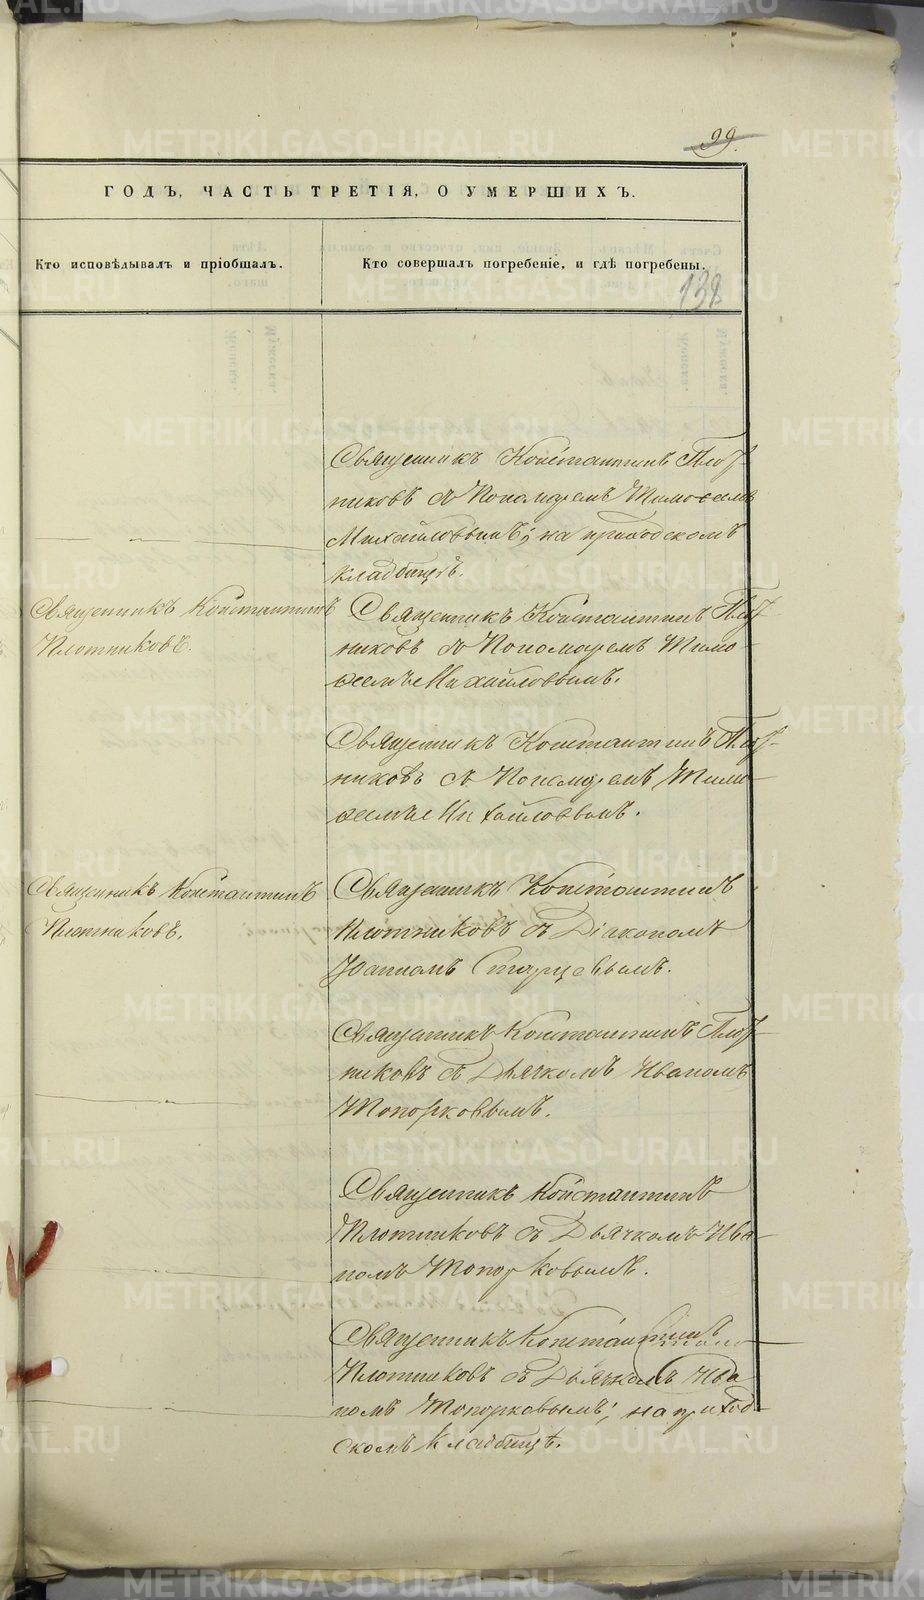 99.
ГОДЪ, ЧАСТЬ ТРЕТІЯ, О УМЕРШИХЪ.
Кто исповѣдывалъ и пріобщалъ.
Кто совершалъ погребеніе, и гдѣ погребены.
138
Священникъ Константинъ Плот-
никовъ съ Пономаремъ Тимоѳеемъ
Михайловымъ; на приходскомъ
кладбищѣ.
Священникъ Константинъ
Плотниковъ.
Священникъ Константинъ Плот-
никовъ съ Пономаремъ Тимо-
ѳеемъ Михайловымъ.
Священникъ Константинъ Плот-
никовъ съ Пономаремъ Тимо-
ѳеемъ Михайловымъ.
Священникъ Константинъ
Плотниковъ.
Священникъ Константинъ
Плотниковъ съ Діакономъ
Іоанномъ Старцевымъ.
Священникъ Константинъ Плот-
никовъ съ Дьячкомъ Иваномъ
Топорковымъ.
Священникъ Константинъ
Плотниковъ съ Дьячкомъ Ива-
номъ Топорковымъ.
Священникъ Константинъ
Плотниковъ съ Дьячкомъ Ива
номъ Топорковымъ; на приход-
скомъ кладбищѣ.
METRIKI.GASO-URAL.RU